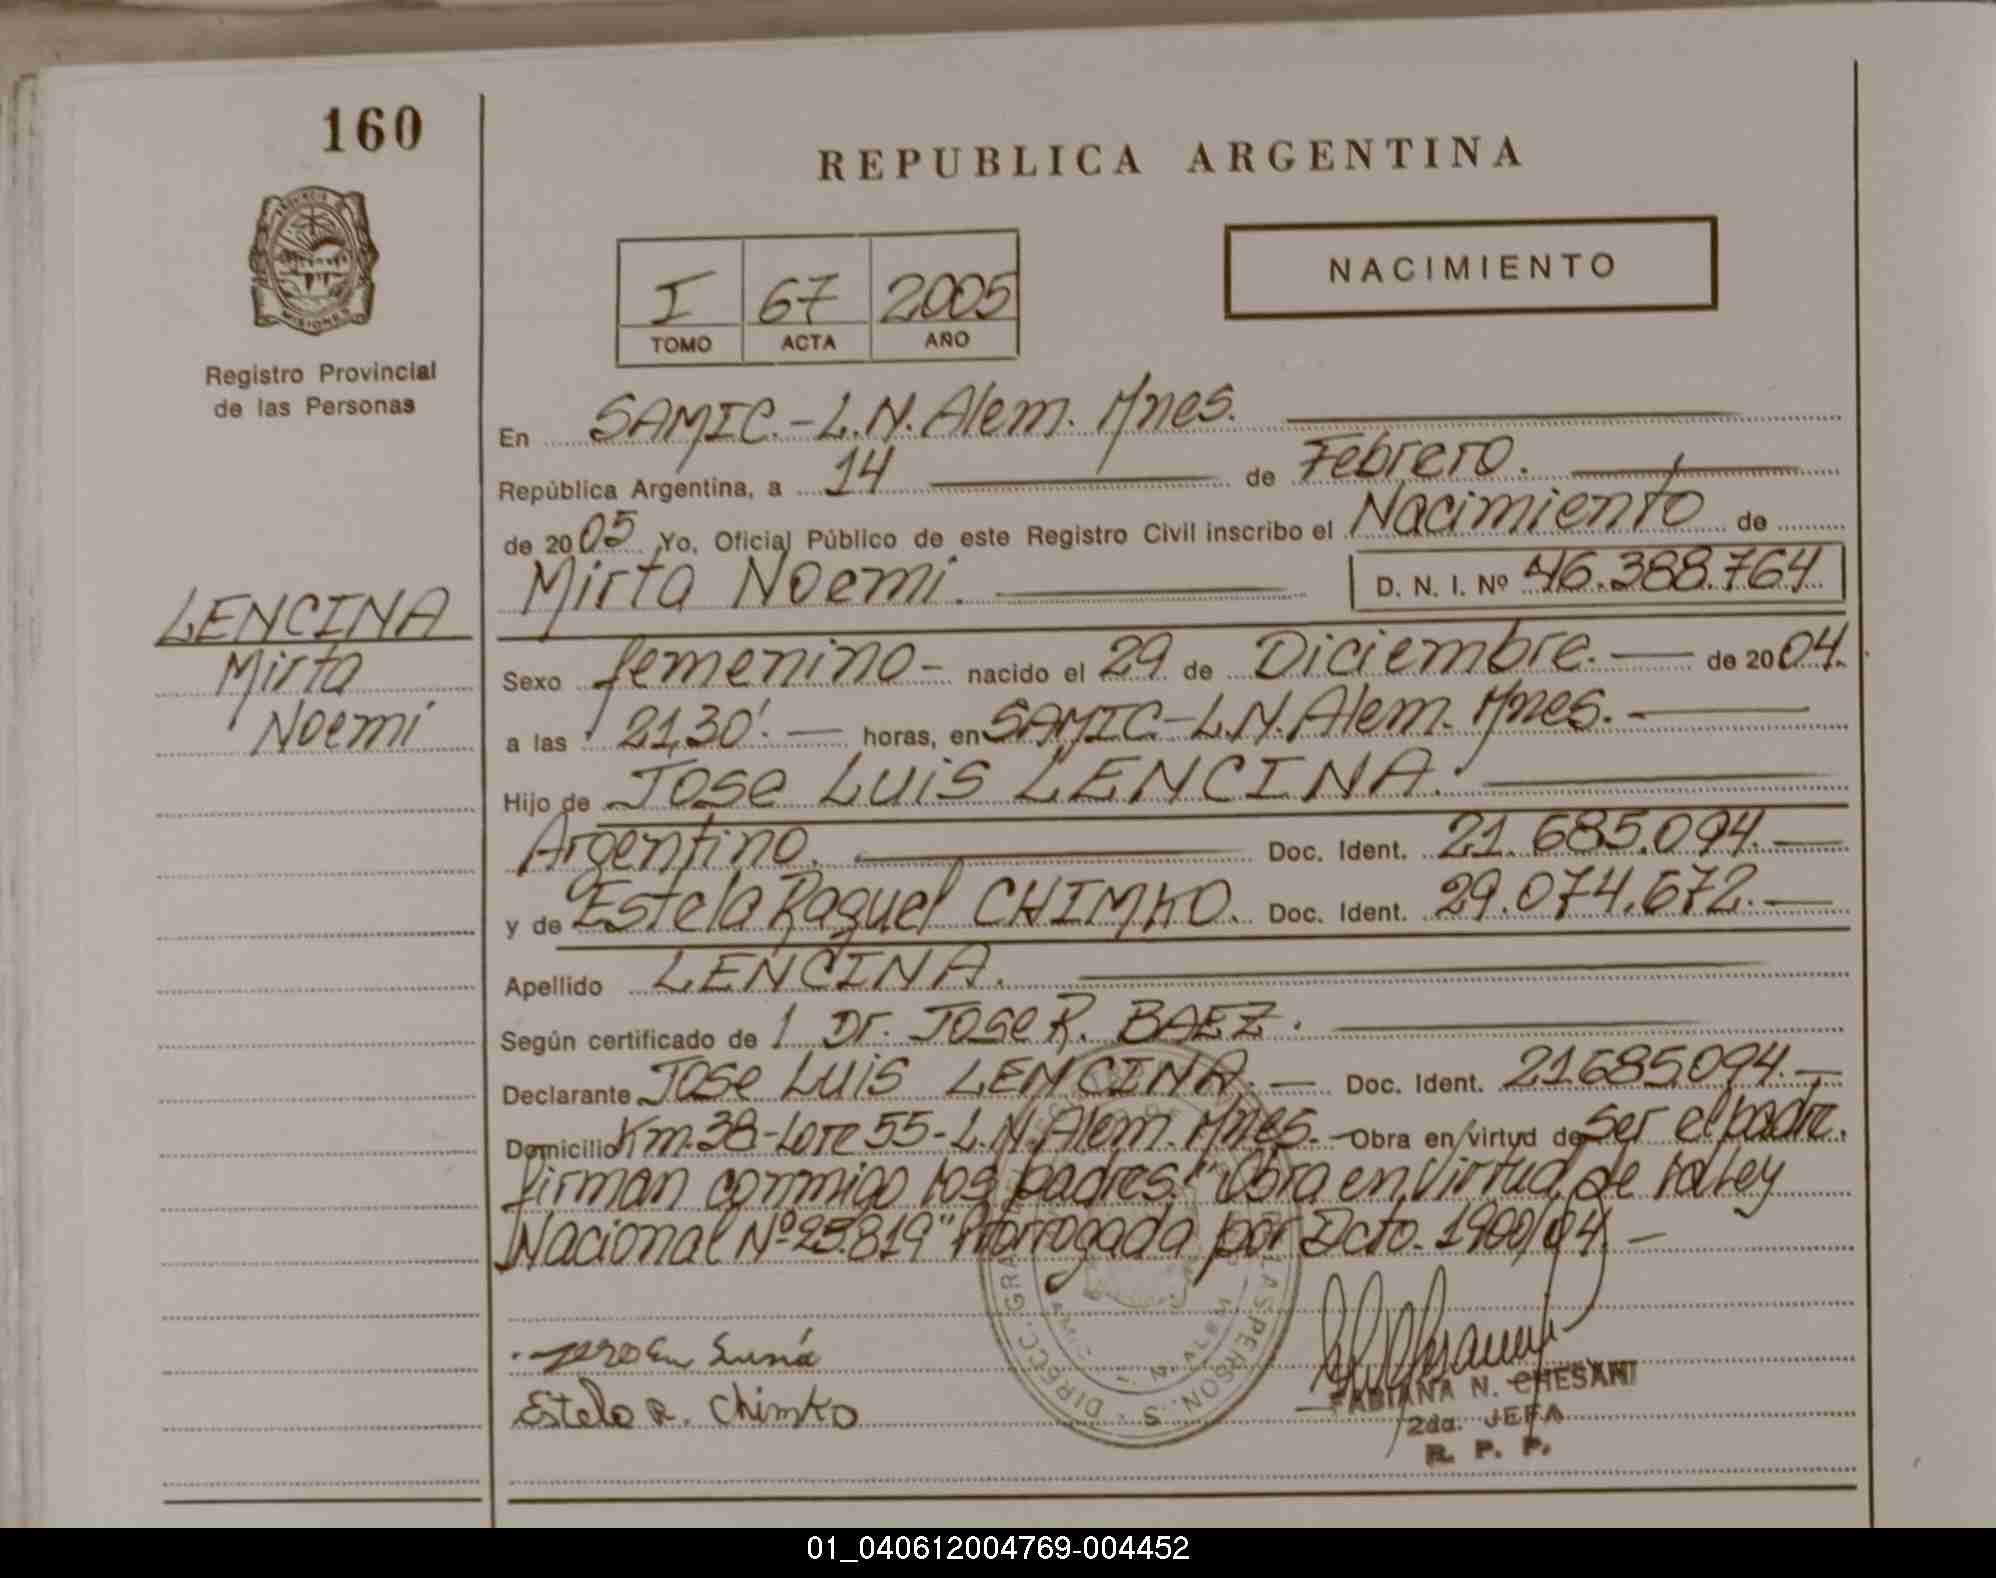 160
REPUBLICA ARGENTINA
PROVINCIA DE
MISIONES
Registro Provincial
de las Personas
I 67 2005
TOMO ACTA AÑO
NACIMIENTO
En SAMIC.-L.N.Alem. Mnes.
República Argentina, a 14 de Febrero.
de 2005 Yo, Oficial Público de este Registro Civil inscribo el Nacimiento de
Mirta Noemi. D. N. I. Nº 46.388.764
LENCINA
Mirta
Noemi
Sexo femenino- nacido el 29 de Diciembre. de 2004.
a las 21,30'. horas, en SAMIC-L.N.Alem. Mnes.
Hijo de Jose Luis LENCINA.
Argentino. Doc. Ident. 21.685.094.
y de Estela Raquel CHIMKO. Doc. Ident. 29.074.672.
Apellido LENCINA.
Según certificado de l Dr. Jose R. BAEZ.
Declarante Jose Luis LENCINA. Doc. Ident. 21685094.
Domicilio Km.38-Lote 55-L.N.Alem. Mnes. Obra en virtud de ser el padre.
firman conmigo los padres. "Obra en virtud de la Ley
Nacional Nº25.819" Prorrogada por Dcto. 1900/04.
Estela R. Chimko
DIRECC. GRAL.
LAS PERSONAS
L. N. ALEM
FABIANA N. CHESANI
2da. JEFA
R. P. P.
01_040612004769-004452